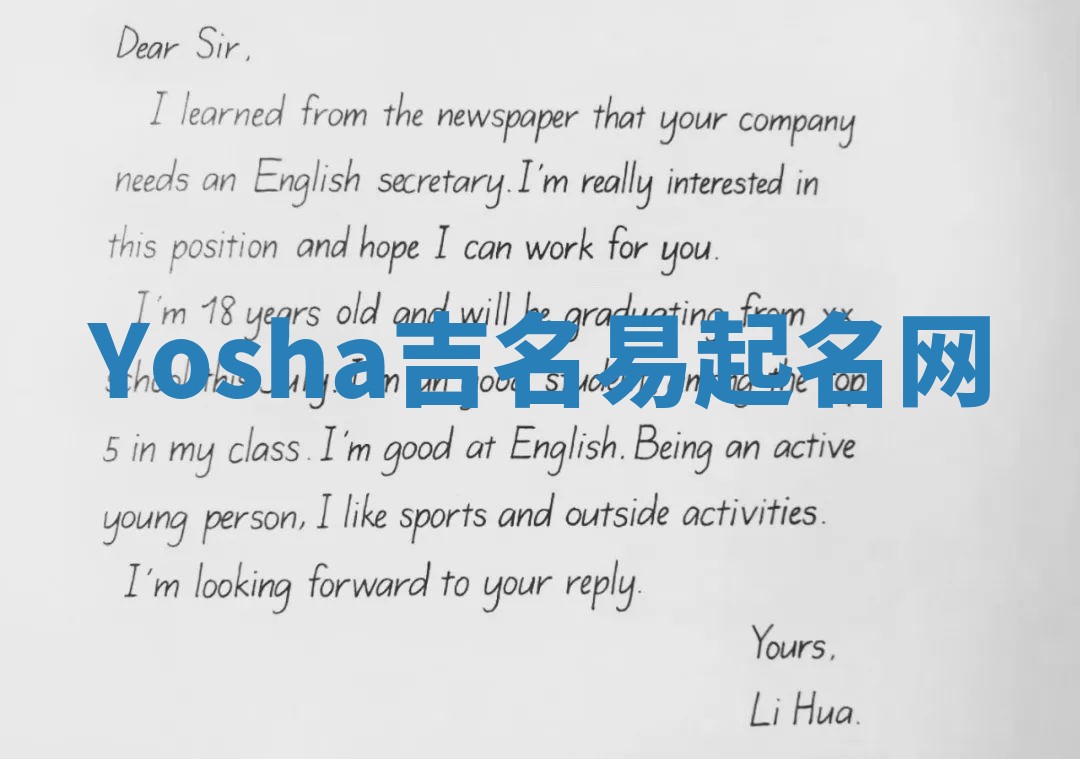 Dear Sir,
I learned from the newspaper that your company
needs an English secretary. I'm really interested in
this position and hope I can work for you.
I'm 18 years old and will be graduating from xx
Yosha吉名易起名网
school this July. I'm student the top
5 in my class. I'm good at English. Being an active
young person, I like sports and outside activities.
I'm looking forward to your reply.
Yours,
Li Hua.